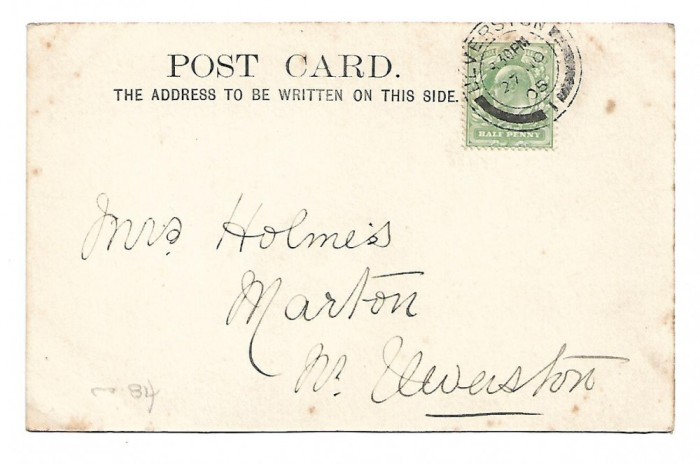 POST CARD.
THE ADDRESS TO BE WRITTEN ON THIS SIDE.
ULVERSTON
27
HALF PENNY
Mrs Holmes
Marton
Nr. Ulverston
84